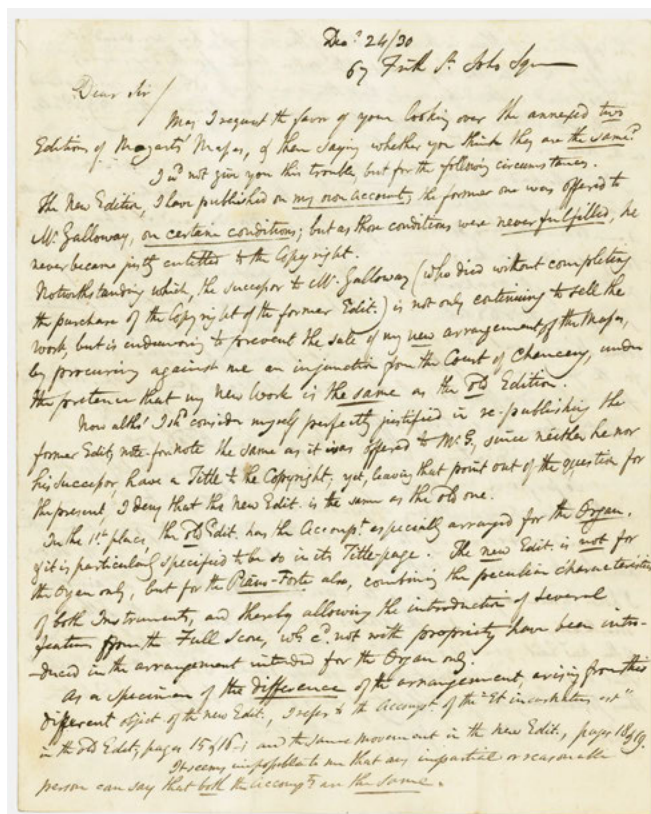 Decr 24/30
67 Frith St. Soho Square
Dear Sir/
May I request the favor of your looking over the annexed two
Editions of Mozart's Masses, & then saying whether you think they are the same?
I wd not give you this trouble, but for the following circumstances.
The New Edition, I have published on my own account; the former one was offered to
Mr. Galloway, on certain conditions; but as those conditions were never fulfilled, he
never became justly entitled to the Copyright.
Notwithstanding which, the successor to Mr. Galloway (who died without completing
the purchase of the Copyright of the former Edit.) is not only continuing to sell the
work, but is endeavoring to prevent the sale of my new arrangement of the Masses,
by procuring against me an injunction from the Court of Chancery, under
the pretence that my New Work is the same as the old Edition.
Now altho' I shd consider myself perfectly justified in re-publishing the
former Edits note-for-note the same as it was offered to Mr G, since neither he nor
his successor, have a Title to the Copyright; yet, leaving that point out of the question for
the present, I deny that the New Edit. is the same as the old one.
In the 1st place, the old Edit. has the Accompt. especially arranged for the Organ,
& it is particularly specified to be so in its Title-page. The new Edit. is not for
the Organ only, but for the Piano-Forte also, combining the peculiar characteristics
of both Instruments, and thereby allowing the introduction of several
features from the Full Score, wh: cd. not with propriety have been intro-
-duced in the arrangement intended for the Organ only.
As a specimen of the difference of the arrangement, arising from this
different object of the new Edit., I refer to the Accompt of the "Et incarnatus est"
in the old Edit, pages 15 & 16 -; and the same movement in the new Edit., pages 18 & 19.
It seems impossible to me that any impartial or reasonable
person can say that both the Accompts are the same.